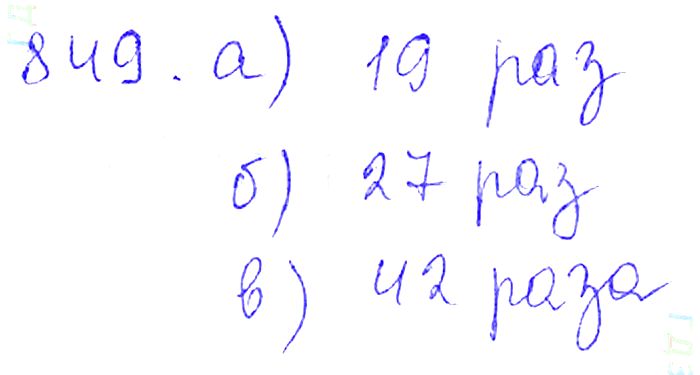 849. а) 19 раз
б) 27 раз
в) 42 раза